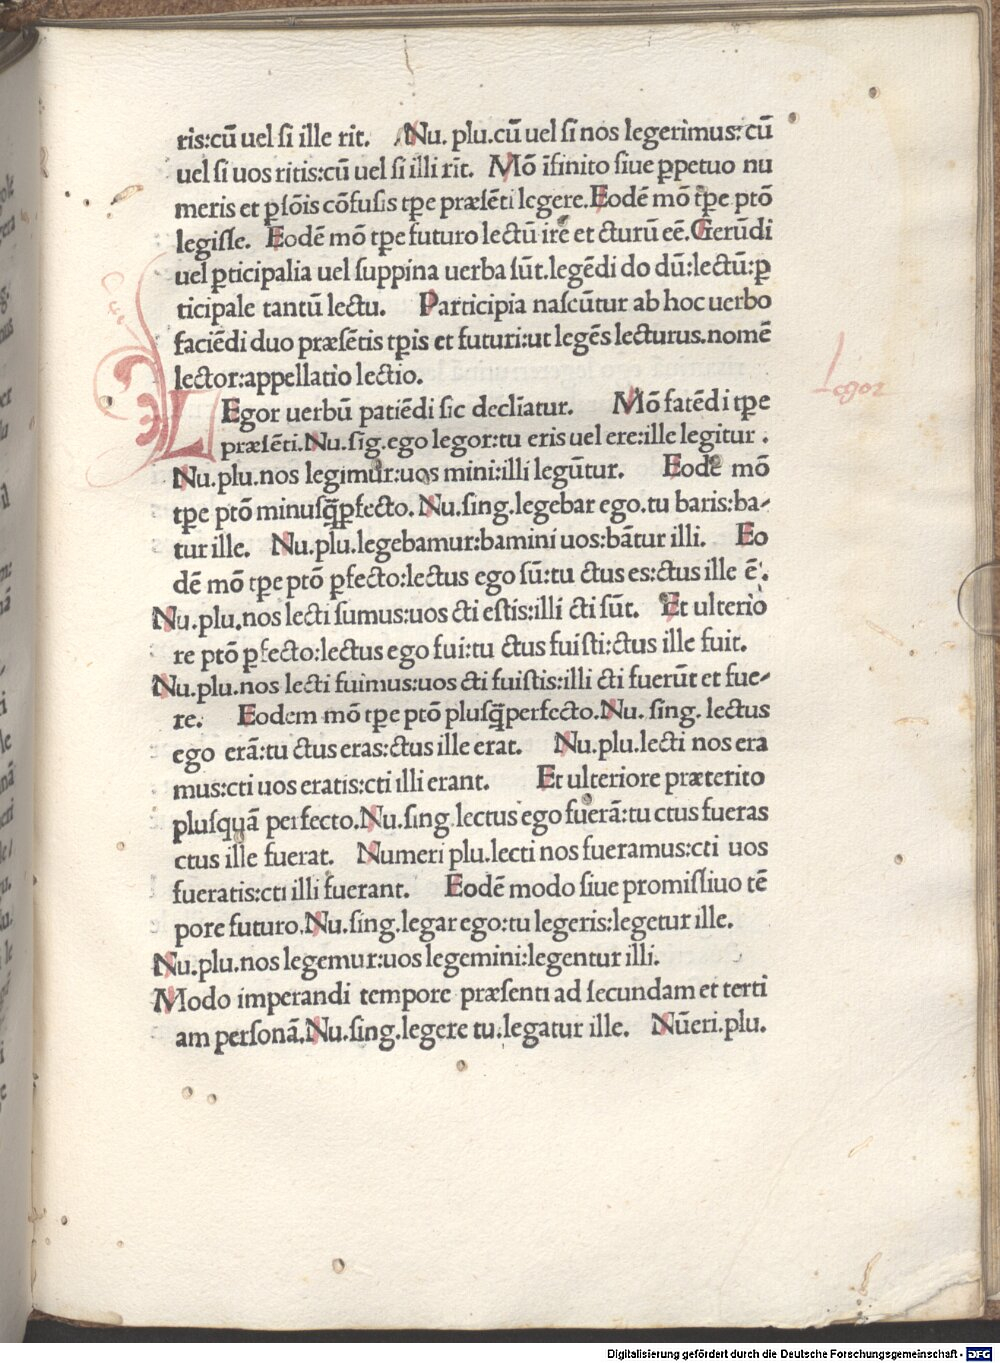 ris:cū uel ſi ille rit. Nu. plu.cū uel ſi nos legerimus:cū
uel ſi uos ritis:cū uel ſi illi rīt. Mō īfinito ſiue ꝑpetuo nu
meris et ꝑſōis cōfuſis tꝑe præſēti legere.Eodē mō tꝑe ptō
legiſſe. Eodē mō tꝑe futuro lectū ire et cturū eē.Gerūdi
uel ꝑticipalia uel ſuppina uerba ſūt.legēdi do dū:lectū:ꝑ
ticipale tantū lectu. Participia naſcūtur ab hoc uerbo
faciēdi duo præſētis tꝑis et futuri:ut legēs lecturus.nomē
lector:appellatio lectio.
LEgor uerbū patiēdi ſic declīatur. Mō fatēdi tꝑe
Legor
præſēti.Nu.ſig.ego legor:tu eris uel ere:ille legitur.
Nu.plu.nos legimur:uos mini:illi legūtur. Eodē mō
tꝑe ptō minuſq̄ꝑfecto.Nu.ſing.legebar ego.tu baris:ba-
tur ille. Nu.plu.legebamur:bamini uos:bātur illi. Eo
dē mō tꝑe ptō ꝑfecto:lectus ego ſū:tu ctus es:ctus ille ē:.
Nu.plu.nos lecti ſumus:uos cti eſtis:illi cti ſūt. Et ulterio
re ptō ꝑfecto:lectus ego fui:tu ctus fuiſti:ctus ille fuit.
Nu.plu.nos lecti fuimus:uos cti fuiſtis:illi cti fuerūt et fue-
re. Eodem mō tꝑe ptō pluſq̄perfecto.Nu. ſing. lectus
ego erā:tu ctus eras:ctus ille erat. Nu.plu.lecti nos era
mus:cti uos eratis:cti illi erant. Et ulteriore præterito
pluſquā perfecto.Nu.ſing.lectus ego fuerā:tu ctus fueras
ctus ille fuerat. Numeri plu.lecti nos fueramus:cti uos
fueratis:cti illi fuerant. Eodē modo ſiue promiſſiuo tē
pore futuro.Nu.ſing.legar ego:tu legeris:legetur ille.
Nu.plu.nos legemur:uos legemini:legentur illi.
Modo imperandi tempore præſenti ad ſecundam et terti
am perſonā.Nu.ſing.legere tu.legatur ille. Nūeri.plu.
Digitalisierung gefördert durch die Deutsche Forschungsgemeinschaft - DFG